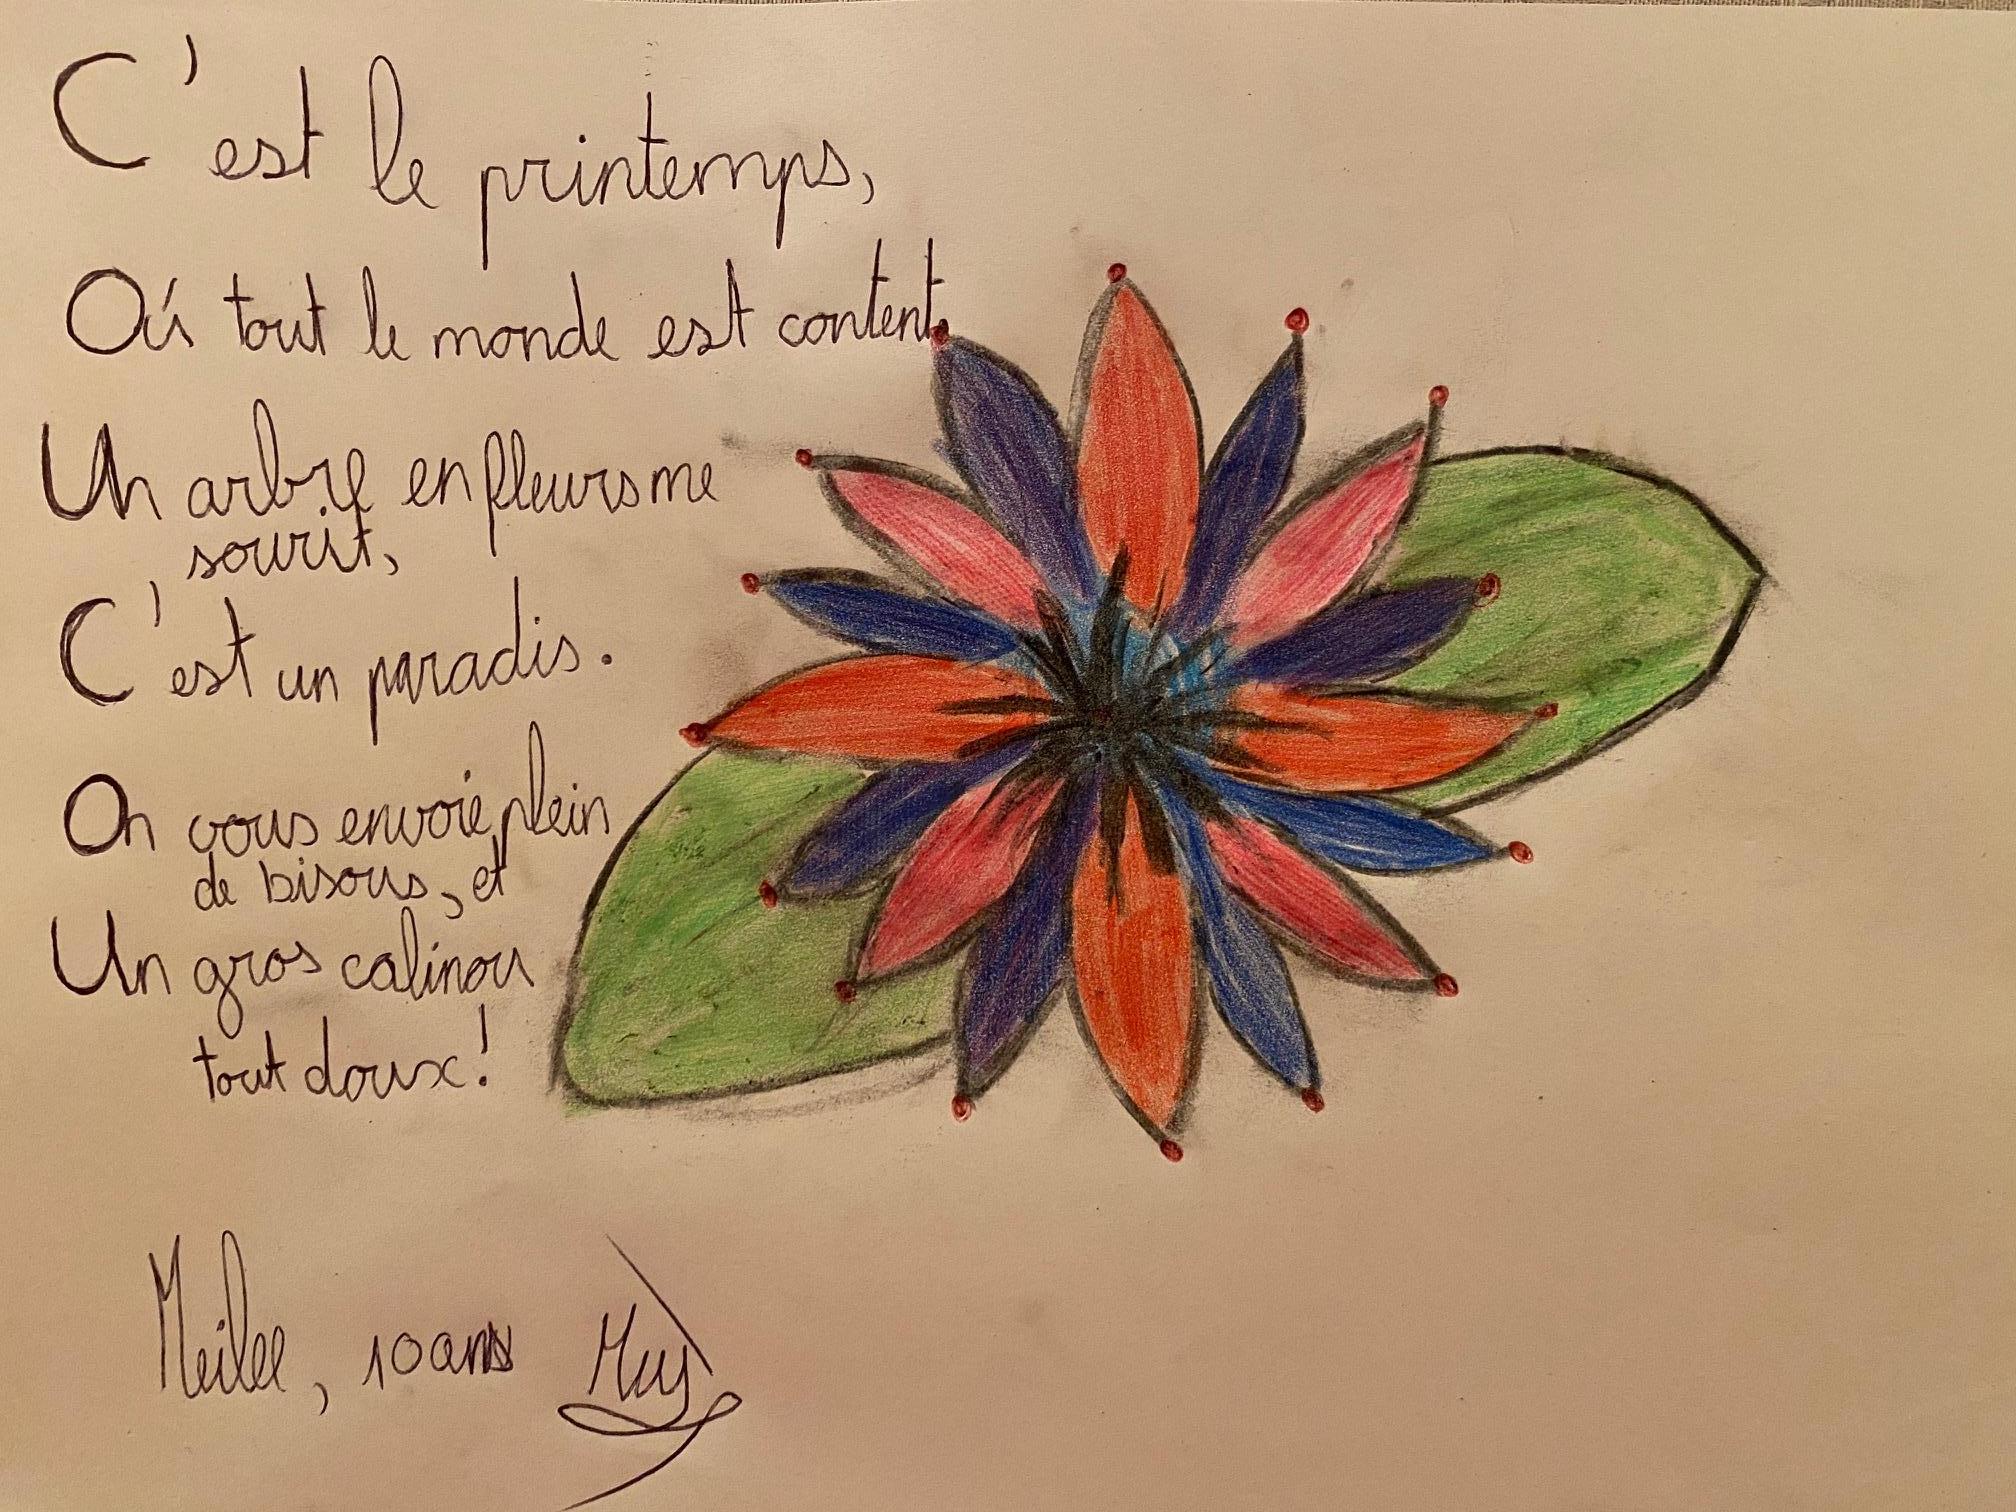 C'est le printemps,
Où tout le monde est content.
Un arbre en fleurs me
sourit,
C'est un paradis.
On vous envoie plein
de bisous, et
Un gros calinou
tout doux!
Meilee, 10 ans